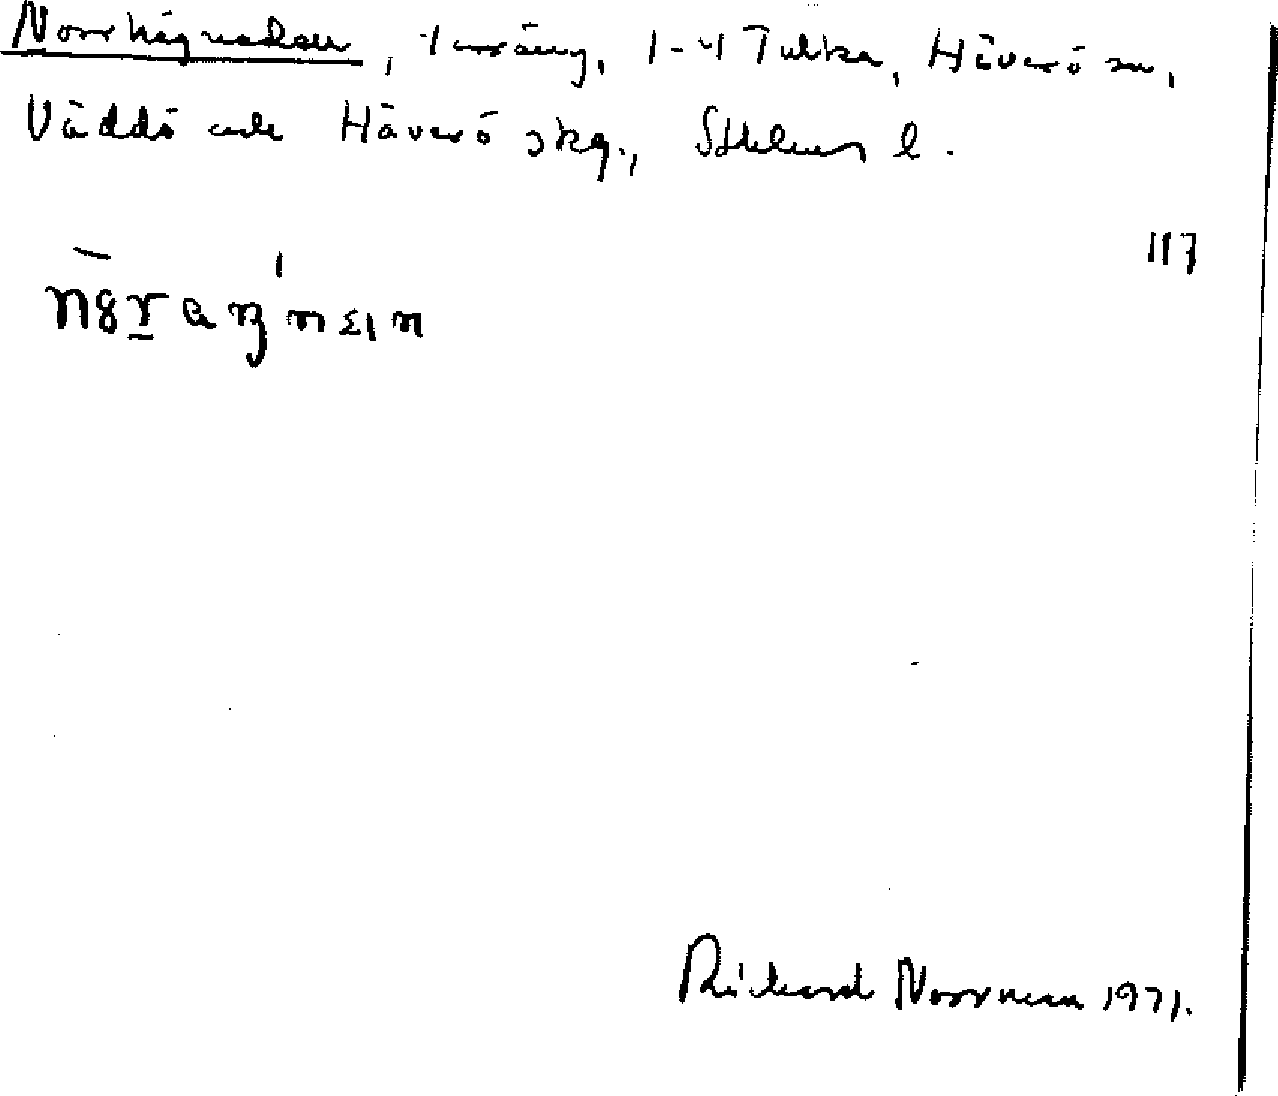 Norrhägnaden, f. inäng, 1-4 Tulka, Häverö sn,
Väddö och Häverö skg., Sthlms l.
117
Rickard Norrman 1971.